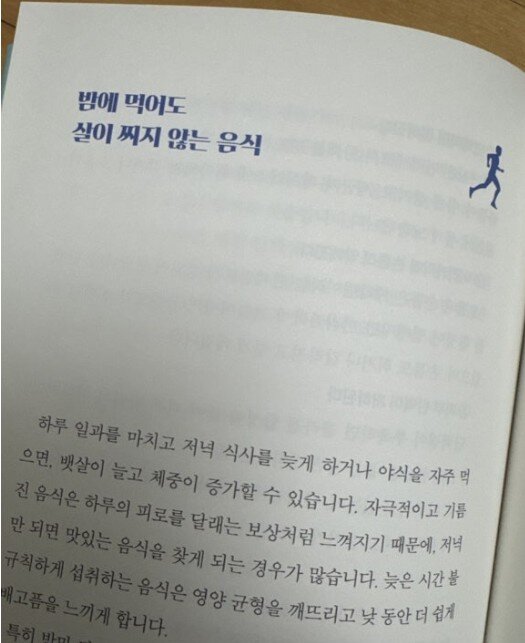 밤에 먹어도
살이 찌지 않는 음식
하루 일과를 마치고 저녁 식사를 늦게 하거나 야식을 자주 먹
으면, 뱃살이 늘고 체중이 증가할 수 있습니다. 자극적이고 기름
진 음식은 하루의 피로를 달래는 보상처럼 느껴지기 때문에, 저녁
만 되면 맛있는 음식을 찾게 되는 경우가 많습니다. 늦은 시간 불
규칙하게 섭취하는 음식은 영양 균형을 깨뜨리고 낮 동안 더 쉽게
배고픔을 느끼게 합니다.
특히 밤마